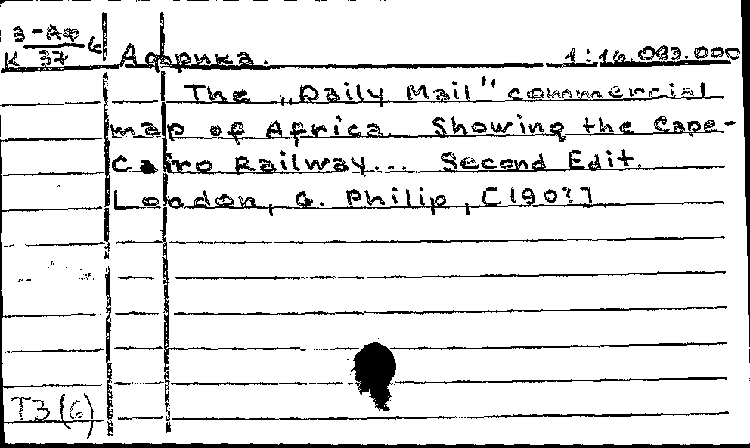 К 3-Аф/37 6
Африка. 1:16.093.000
The „Daily Mail" commercial
map of Africa. Showing the Cape-
Cairo Railway... Second Edit.
London, G. Philip, [190?]
T3(6)